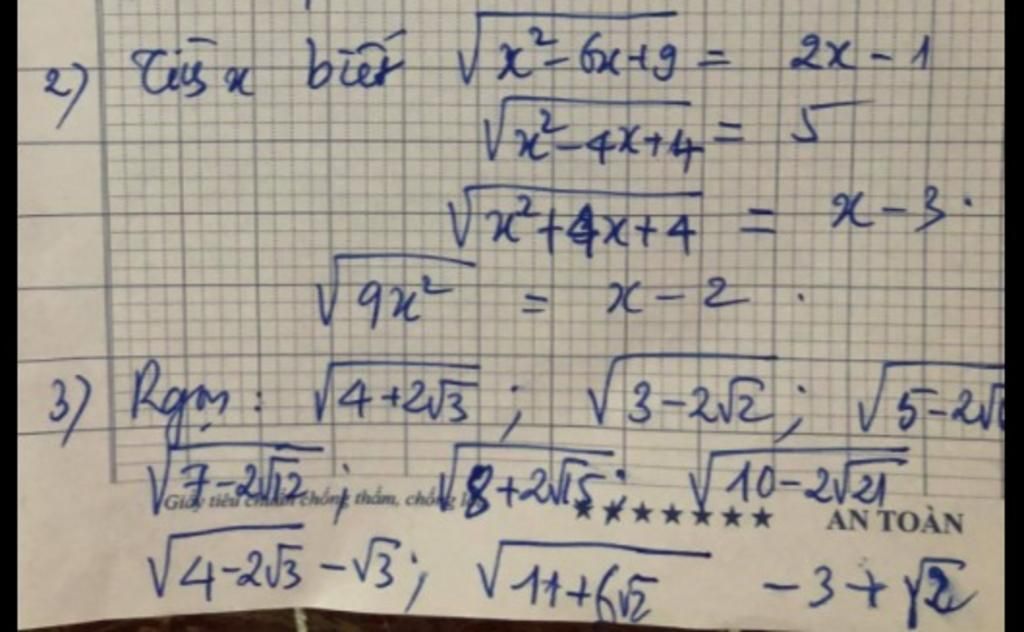 2) Tìm x biết √(x²-6x+9) = 2x-1
√(x²-4x+4) = 5
√(x²+4x+4) = x-3.
√(9x²) = x-2.
3) Rgọn: √(4+2√3) ; √(3-2√2) ; √(5-2√
√(7-2√12) ; √(8+2√15) ; √(10-2√21)
Giấy tiêu chuẩn chống thấm, chống ★★★★★★★ AN TOÀN
√(4-2√3) - √3 ; √(11+6√2) - 3 + √2